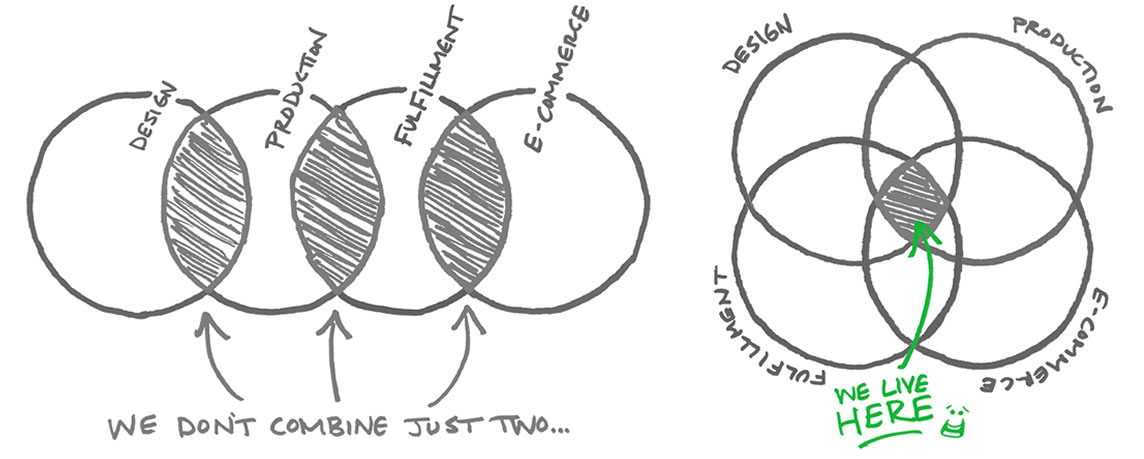 DESIGN
PRODUCTION
FULFILLMENT
E-COMMERCE
WE DON'T COMBINE JUST TWO...
DESIGN
PRODUCTION
FULFILLMENT
E-COMMERCE
WE LIVE
HERE